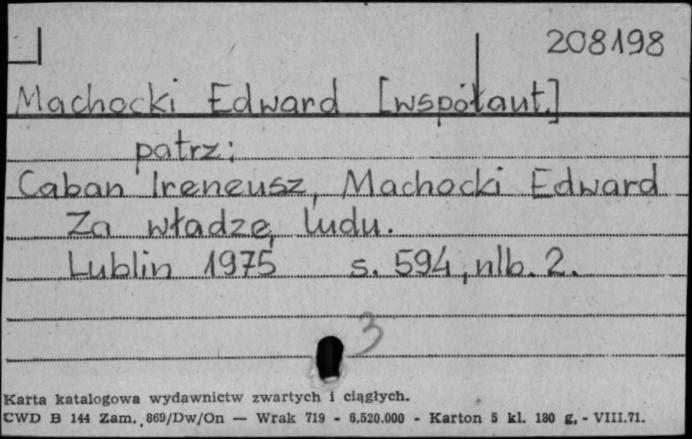 208198
Machocki Edward [współaut.]
patrz:
Caban Ireneusz, Machocki Edward
Za władzę ludu.
Lublin 1975 s. 594, nlb. 2.
3
Karta katalogowa wydawnictw zwartych i ciągłych.
CWD B 144 Zam. 869/Dw/On — Wrak 719 - 6.520.000 - Karton 5 kl. 180 g. - VIII.71.